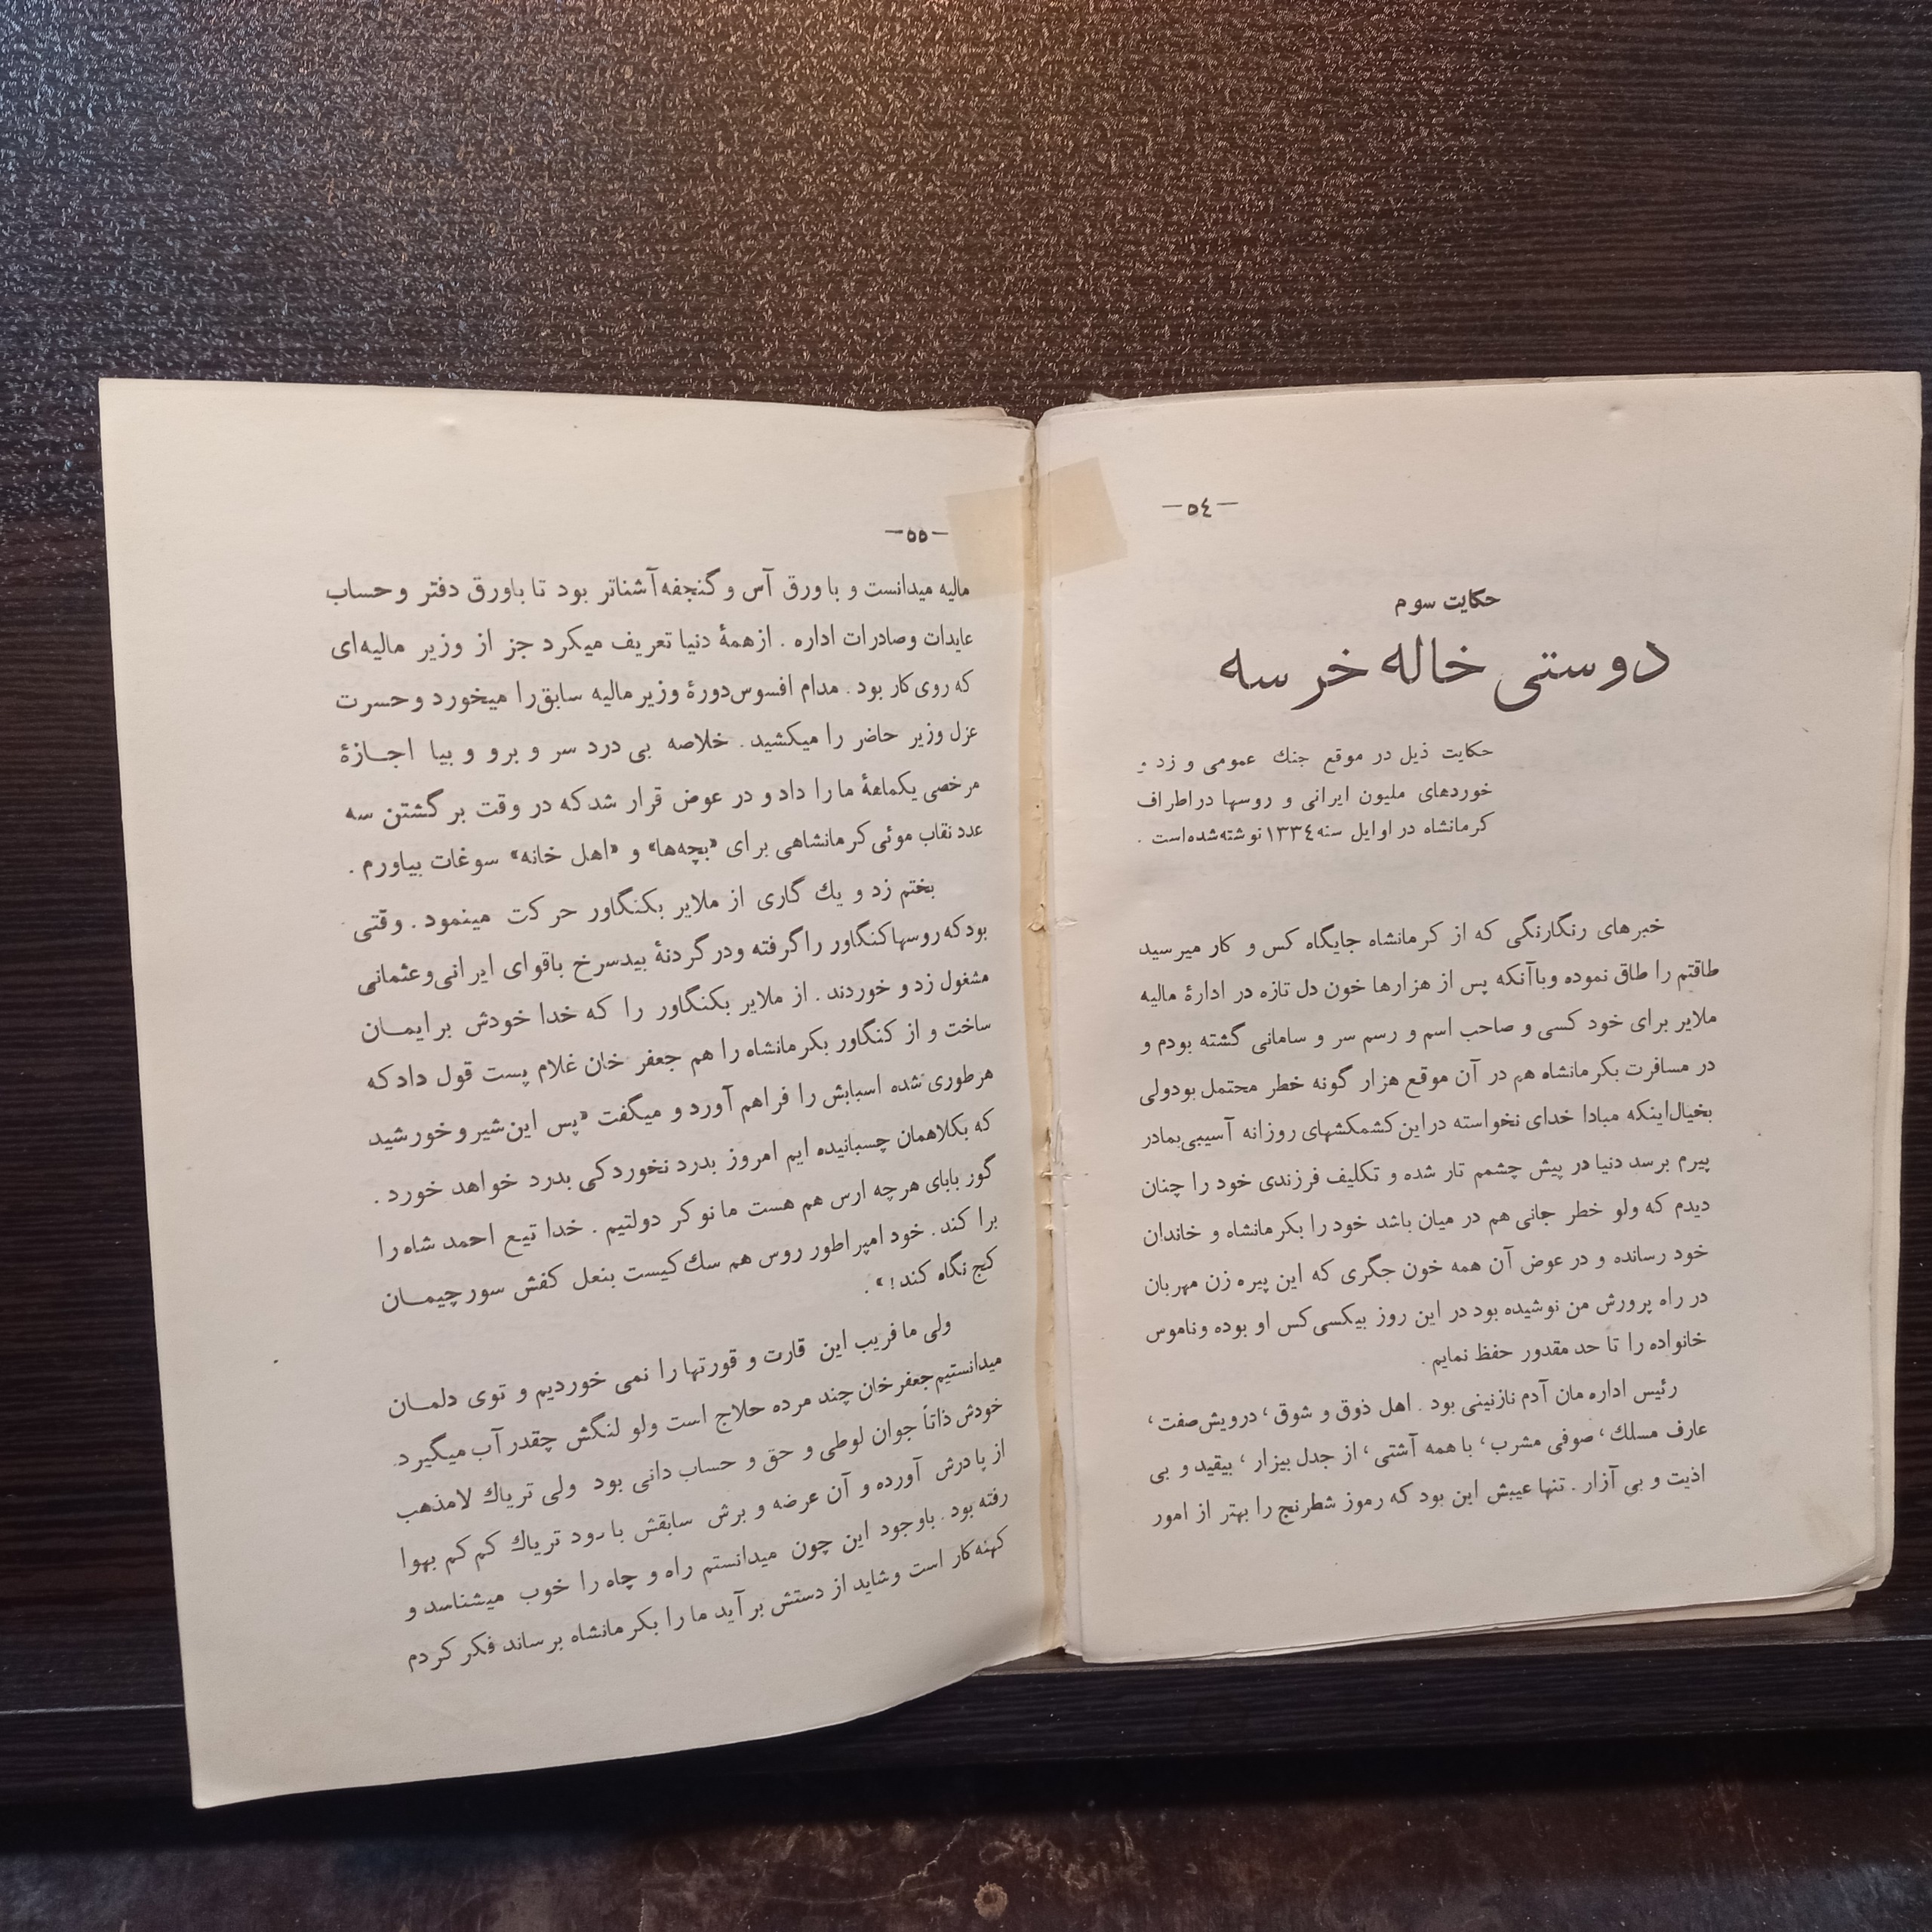 —٥٤—
حکایت سوم
دوستی خاله خرسه
حکایت ذیل در موقع جنك عمومی و زد و
خوردهای ملیون ایرانی و روسها در اطراف
کرمانشاه در اوایل سنه ١٣٣٤ نوشته شده است .
خبرهای رنگارنگی که از کرمانشاه جایگاه کس و کار میرسید
طاقتم را طاق نموده و باآنکه پس از هزارها خون دل تازه در ادارهٔ مالیه
ملایر برای خود کسی و صاحب اسم و رسم سر و سامانی گشته بودم و
در مسافرت بکرمانشاه هم در آن موقع هزار گونه خطر محتمل بود ولی
بخیال اینکه مبادا خدای نخواسته در این کشمکشهای روزانه آسیبی بمادر
پیرم برسد دنیا در پیش چشمم تار شده و تکلیف فرزندی خود را چنان
دیدم که ولو خطر جانی هم در میان باشد خود را بکرمانشاه و خاندان
خود رسانده و در عوض آن همه خون جگری که این پیره زن مهربان
در راه پرورش من نوشیده بود در این روز بیکسی کس او بوده و ناموس
خانواده را تا حد مقدور حفظ نمایم .
رئیس اداره مان آدم نازنینی بود . اهل ذوق و شوق ، درویش صفت ،
عارف مسلك ، صوفی مشرب ، با همه آشتی ، از جدل بیزار ، بیقید و بی
اذیت و بی آزار . تنها عیبش این بود که رموز شطرنج را بهتر از امور
—٥٥—
مالیه میدانست و با ورق آس و گنجفه آشناتر بود تا باورق دفتر و حساب
عایدات و صادرات اداره . از همهٔ دنیا تعریف میکرد جز از وزیر مالیه‌ای
که روی کار بود . مدام افسوس دورهٔ وزیر مالیه سابق را میخورد و حسرت
عزل وزیر حاضر را میکشید . خلاصه بی درد سر و برو و بیا اجازهٔ
مرخصی یکماههٔ ما را داد و در عوض قرار شد که در وقت بر گشتن سه
عدد نقاب موئی کرمانشاهی برای «بچه‌ها» و «اهل خانه» سوغات بیاورم .
بختم زد و یك گاری از ملایر بکنگاور حرکت مینمود . وقتی
بود که روسها کنگاور را گرفته و در گردنهٔ بیدسرخ باقوای ایرانی و عثمانی
مشغول زد و خوردند . از ملایر بکنگاور را که خدا خودش برایمان
ساخت و از کنگاور بکرمانشاه را هم جعفر خان غلام پست قول داد که
هرطوری شده اسبابش را فراهم آورد و میگفت «پس این شیر و خورشید
که بکلاهمان چسبانیده ایم امروز بدرد نخورد کی بدرد خواهد خورد .
گور بابای هرچه ارس هم هست ما نوکر دولتیم . خدا تیع احمد شاه را
برا کند . خود امپراطور روس هم سك کیست بنعل کفش سورچیمان
کج نگاه کند!» .
ولی ما فریب این قارت و قورتها را نمی خوردیم و توی دلمان
میدانستیم جعفر خان چند مرده حلاج است و لو لنگش چقدر آب میگیرد
خودش ذاتاً جوان لوطی و حق و حساب دانی بود ولی تریاك لامذهب
از پا درش آورده و آن عرضه و برش سابقش با دود تریاك کم کم بهوا
رفته بود . باوجود این چون میدانستم راه و چاه را خوب میشناسد و
کهنه کار است و شاید از دستش بر آید ما را بکرمانشاه برساند فکر کردم